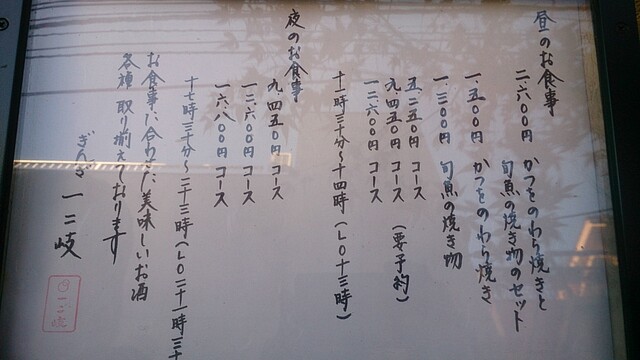 昼のお食事
二、六〇〇円 かつをのわら焼きと
旬魚の焼き物のセット
一、五〇〇円 かつをのわら焼き
一、三〇〇円 旬魚の焼き物
五、二五〇円 コース
九、四五〇円 コース (要予約)
一二、六〇〇円 コース
十一時三十分〜十四時(LO十三時)
夜のお食事
九、四五〇円 コース
一二、六〇〇円 コース
一六、八〇〇円 コース
十七時三十分〜二十三時(LO二十一時三十
お食事に合わせた美味しいお酒
各種取り揃えております
ぎんざ 一二岐